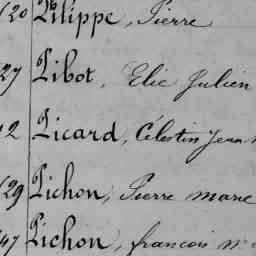 120 Pilippe, Pierre
27 Pibot, Elie Julien
12 Picard, Célestin Jean
129 Pichon, Pierre marie
147 Pichon, francois